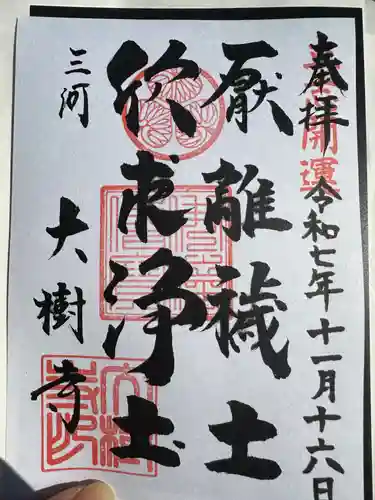 奉拝 令和七年十一月十六日
開運
厭離穢土
欣求浄土
三河 大樹寺